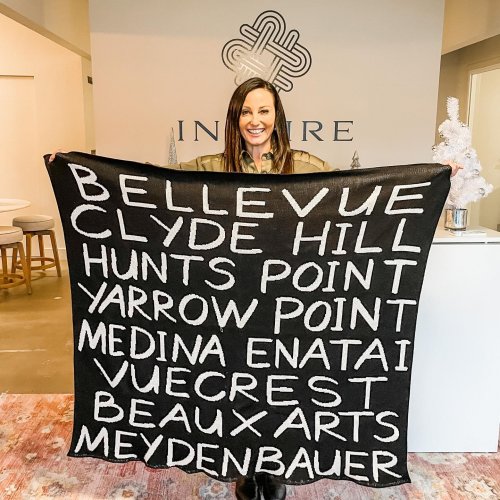 IN IRE
BELLEVUE
CLYDE HILL
HUNTS POINT
YARROW POINT
MEDINA ENATAI
VUECREST
BEAUX ARTS
MEYDENBAUER